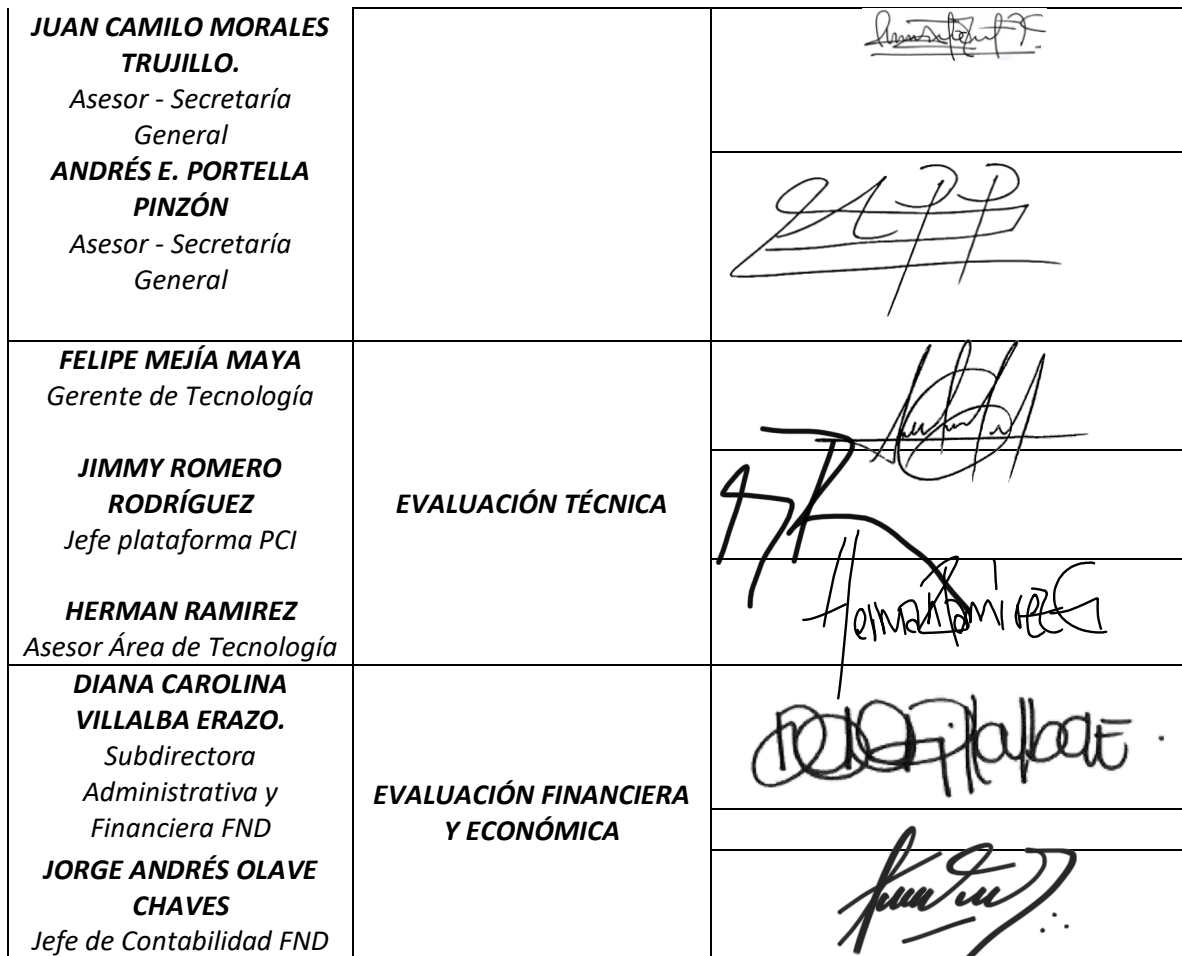 JUAN CAMILO MORALES
TRUJILLO.
Asesor - Secretaría
General
ANDRÉS E. PORTELLA
PINZÓN
Asesor - Secretaría
General
FELIPE MEJÍA MAYA
Gerente de Tecnología
JIMMY ROMERO
RODRÍGUEZ
Jefe plataforma PCI
HERMAN RAMIREZ
Asesor Área de Tecnología
EVALUACIÓN TÉCNICA
DIANA CAROLINA
VILLALBA ERAZO.
Subdirectora
Administrativa y
Financiera FND
JORGE ANDRÉS OLAVE
CHAVES
Jefe de Contabilidad FND
EVALUACIÓN FINANCIERA
Y ECONÓMICA